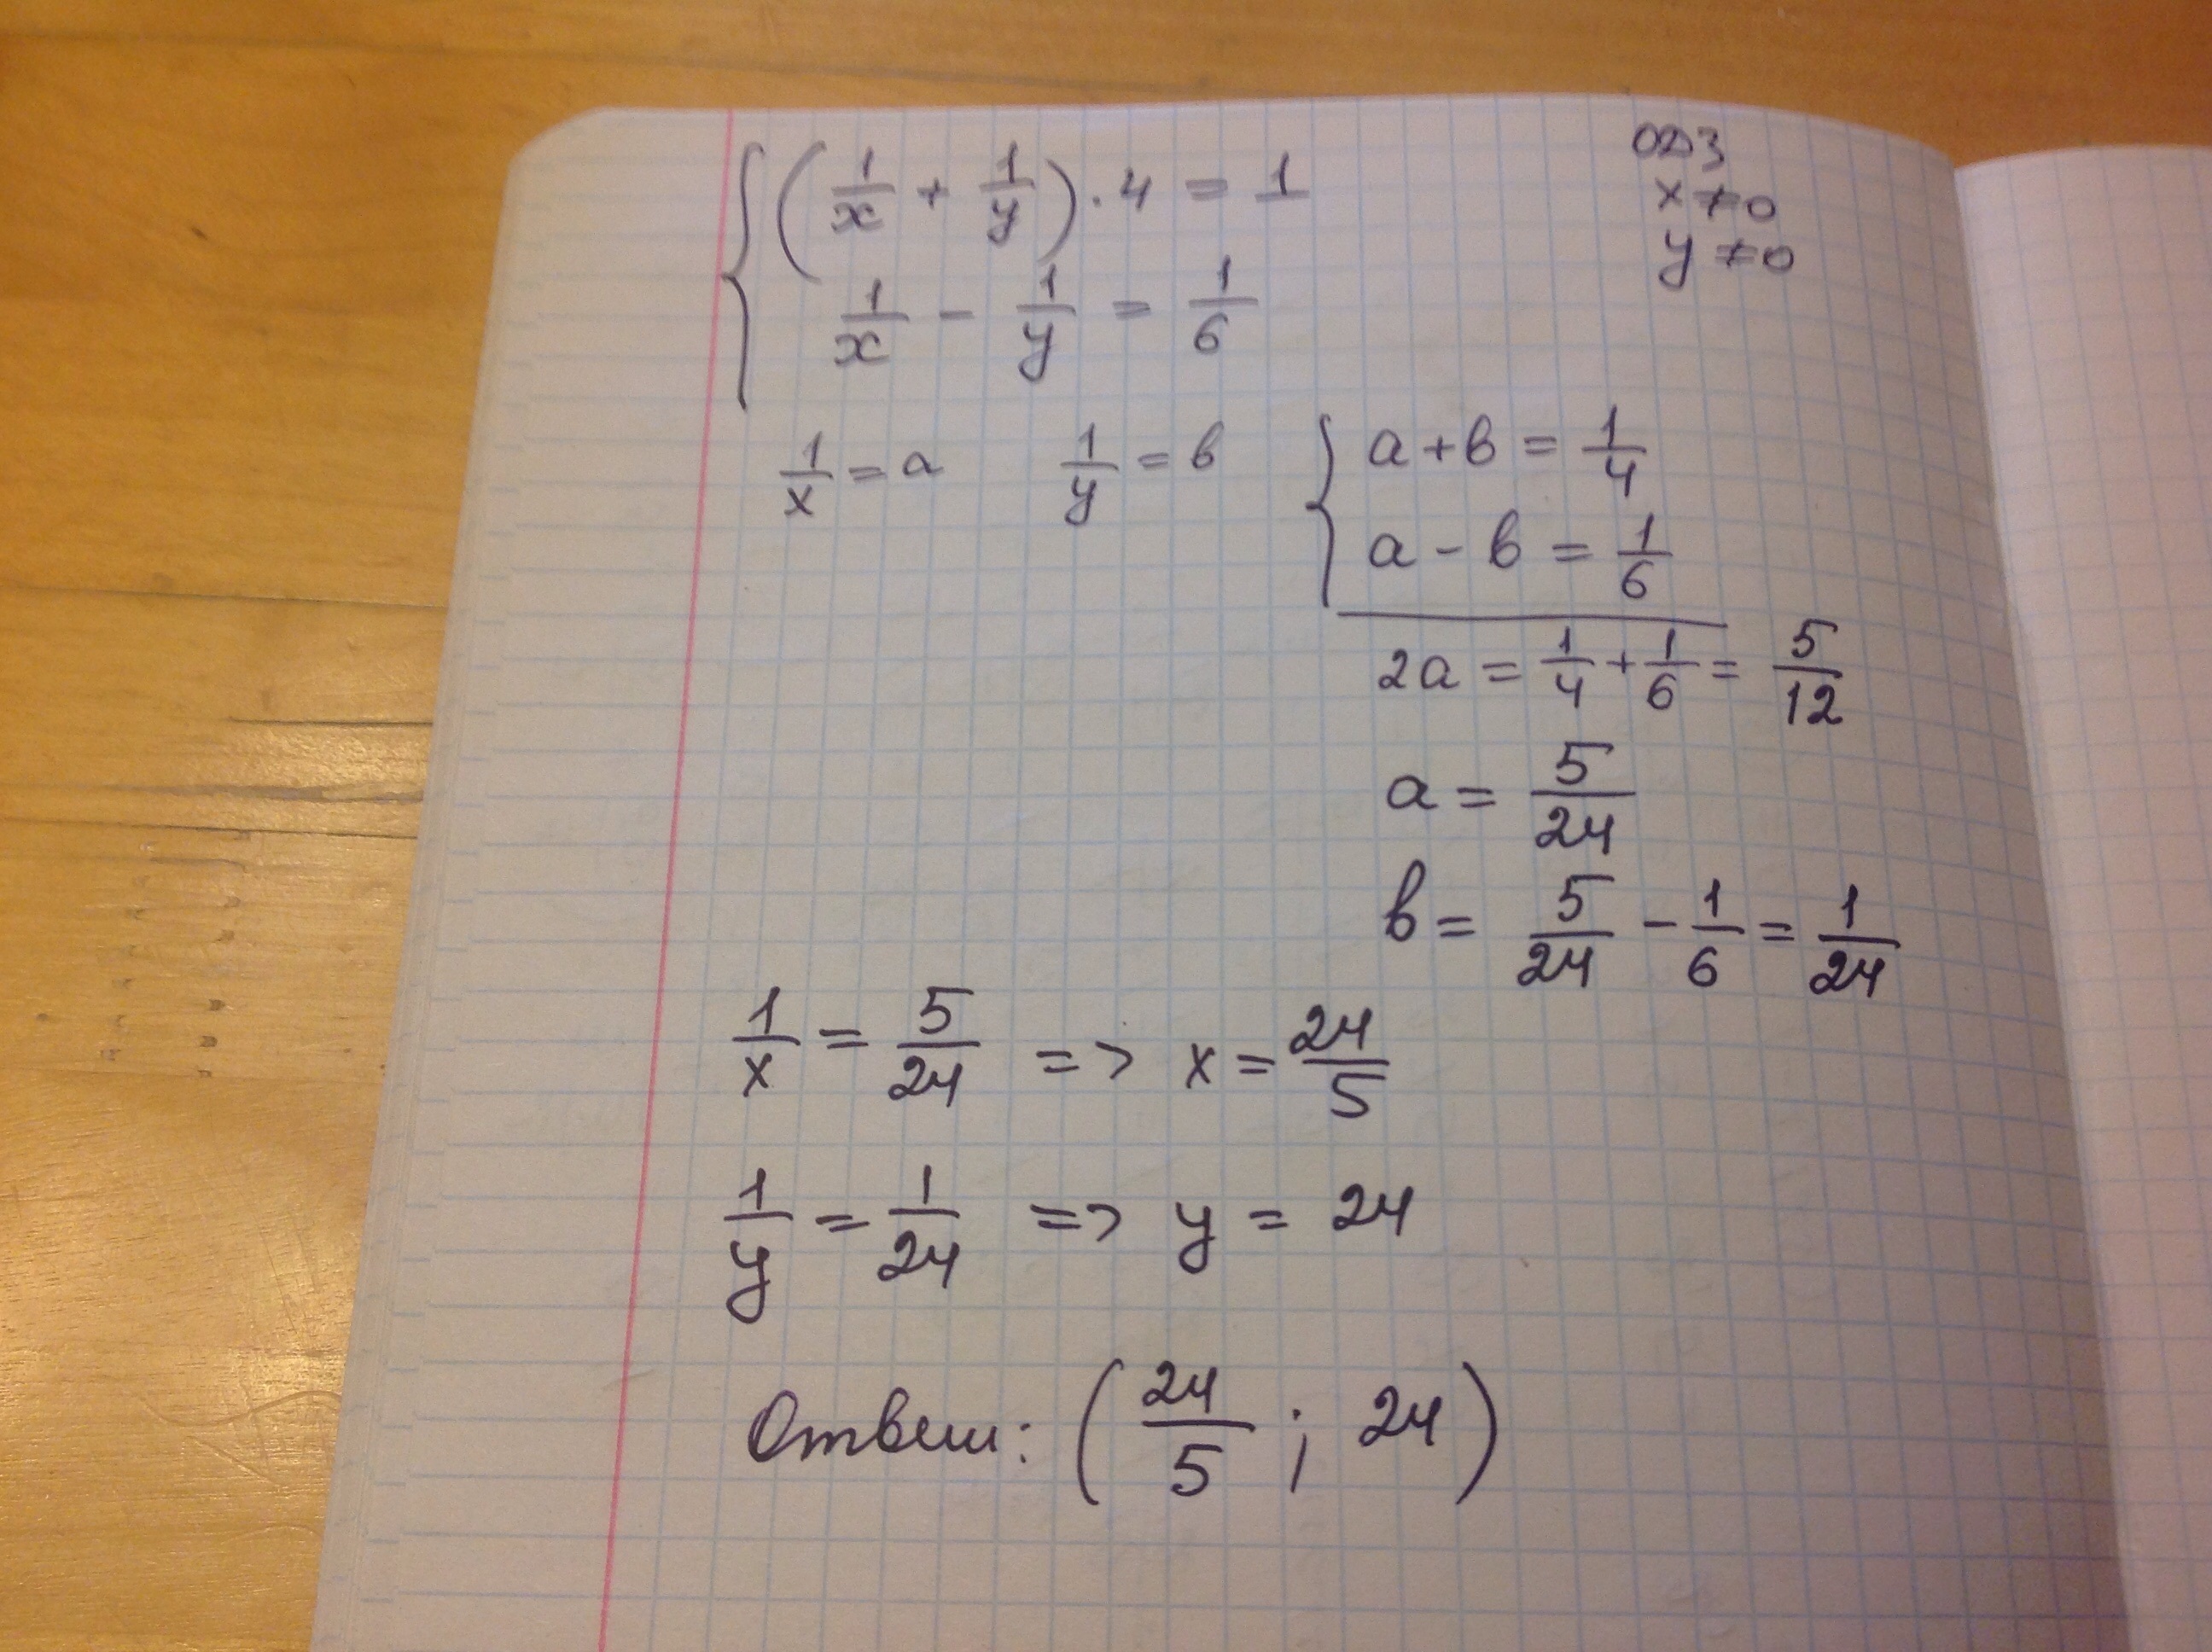 (1/x + 1/y) · 4 = 1
ОДЗ
x ≠ 0
y ≠ 0
1/x - 1/y = 1/6
1/x = a 1/y = в
a + в = 1/4
a - в = 1/6
2a = 1/4 + 1/6 = 5/12
a = 5/24
в = 5/24 - 1/6 = 1/24
1/x = 5/24 => x = 24/5
1/y = 1/24 => y = 24
Ответ: (24/5 ; 24)